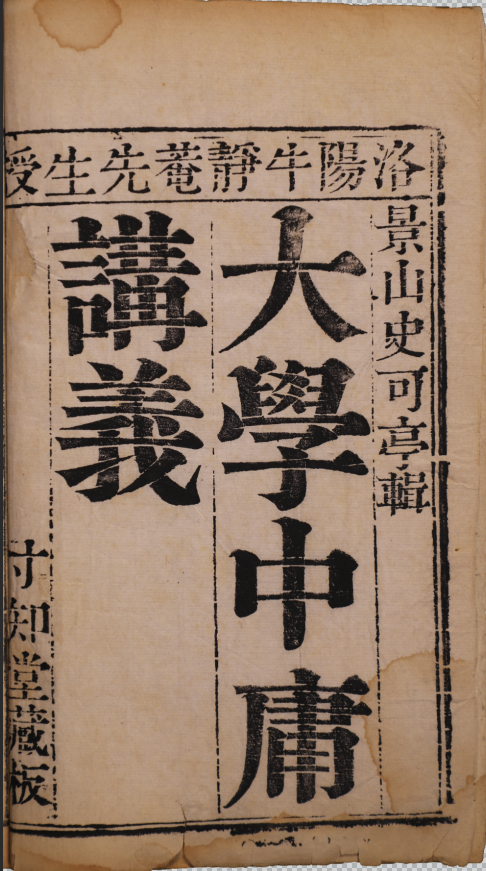 洛陽牛靜菴先生授
景山史可亭輯
大學中庸
講義
寸知堂藏板